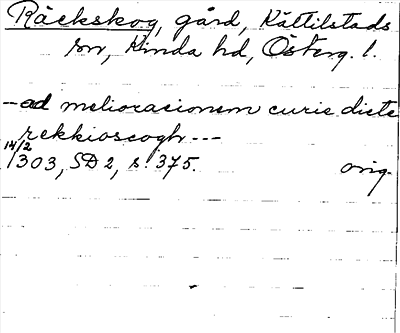 Räckskog, gård, Kättilstads
sn, Kinda hd, Österg. l.
-- ad melioracionem curie dicte
rekkioscogh ---
14/2 1303, SD 2, s. 375. orig.